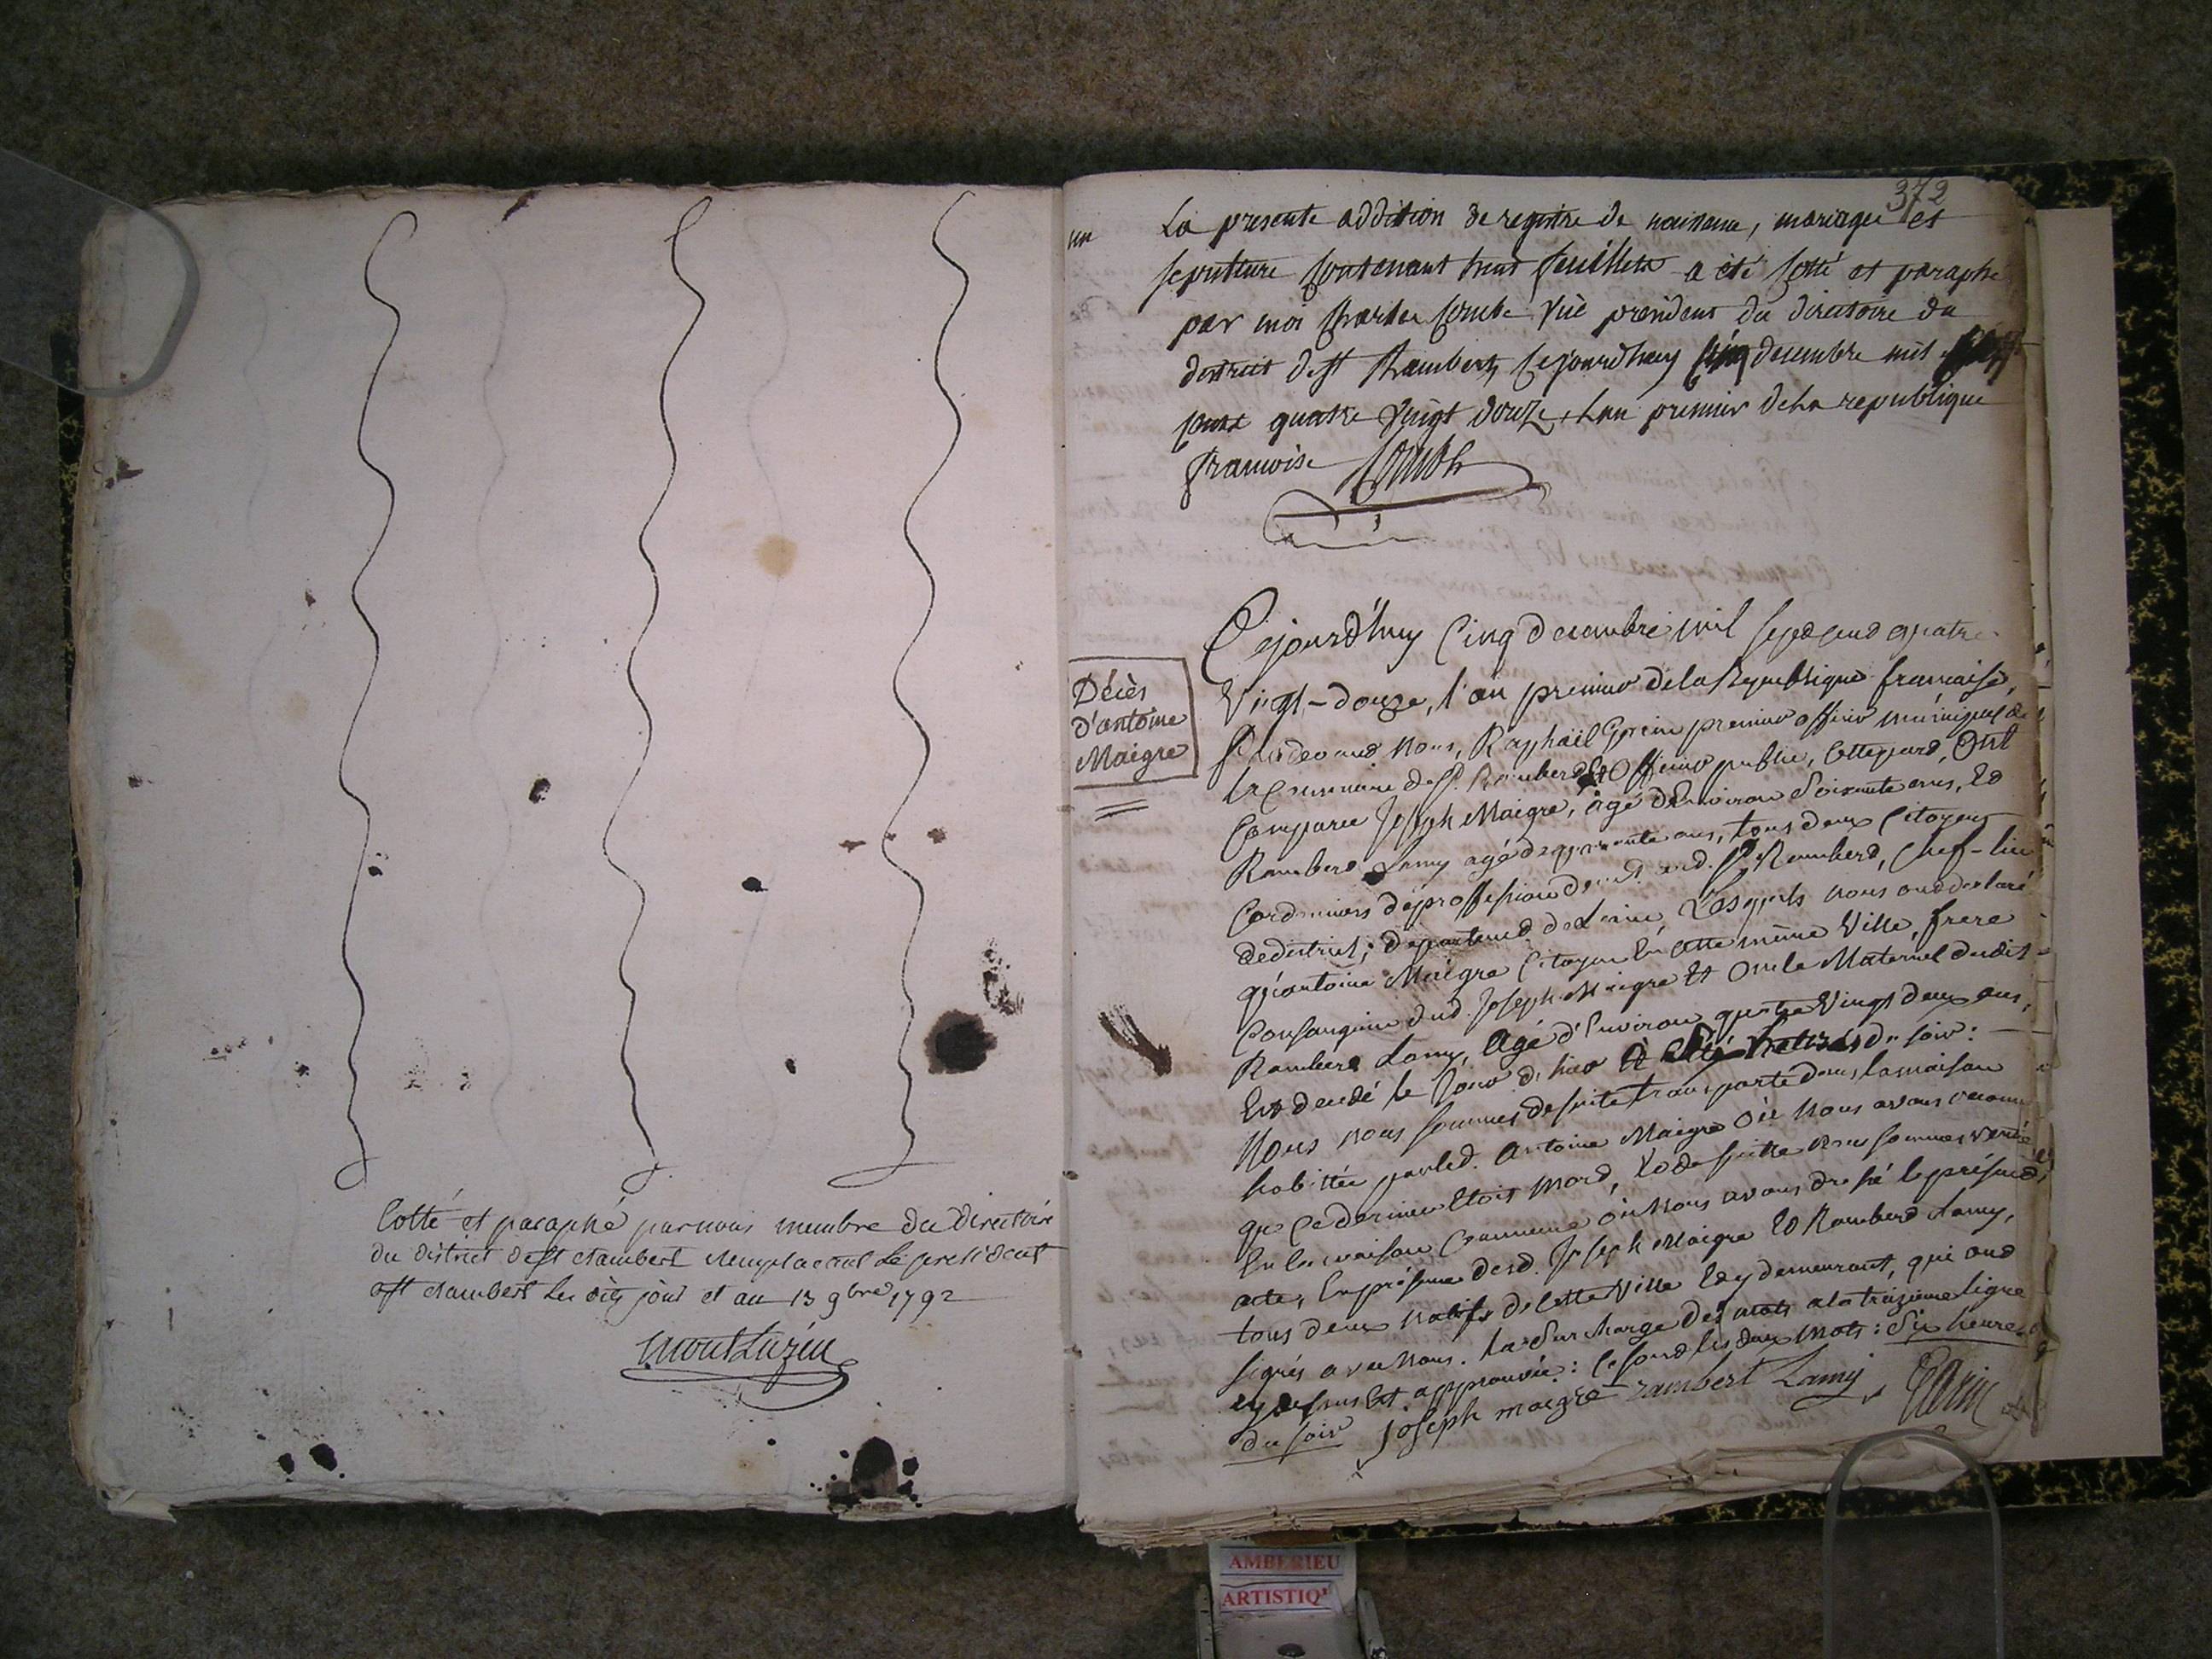 Cotté et paraphé par nous membre du directoire
du district de st Rambert remplacant le president
a st Rambert les dits jour et an 13 9bre 1792
Montluzin
372
un
La presente addition de registre de naissance, mariages et
sepulture contenant huit feuillets a été cotté et paraphé
par moi Charles Combe vice president du directoire du
district de st Rambert, cejourdhuy cinq decembre mil sept
cent quatre vingt douze, l'an premier de la republique
francoise Combe
Décès
d'antoine
Maigre
Cejourd'huy Cinq decembre mil sept cent quatre
Vingt-douze, l'an premier de la Republique francaise,
Pardevant nous, Raphaël premier officier municipal de
la Commune de st. Rambert Et Officier public, Cette part, Ont
Comparu Joseph Maigre, âgé d'Environ Soixante ans, Et
Rambert Lamy agé de quarante ans, tous deux Citoyens
Cordonniers de proffession aud. St Rambert, Chef-lieu
de district, departement de Laine, Lesquels nous ont declaré
qu'antoine Maigre Citoyen En cette même Ville, frere
Consanguin dud. Joseph Maigre Et Oncle Maternel dudit
Rambert Lamy, Agé d'Environ quatre Vingt deux ans,
Est decedé le Jour d'hier à Six heures du soir:
Nous nous sommes de suite transporté dans la maison
habittée par led. Antoine Maigre où Nous avons reconnu
que Ce dernier Etoit Mort, Et de suitte nous sommes
En la maison Commune où Nous avons dressé le présent
acte, En présence desd. Joseph Maigre Et Rambert Lamy,
tous deux natifs de Cette Ville Et y demeurant, qui ont
signés avec Nous. La Surcharge des mots a la treizieme ligne
cy dessus Est approuvée: Ce sont les deux mots: Six heures
du soir Joseph maigre rambert Lamy
AMBERIEU
ARTISTIQ'